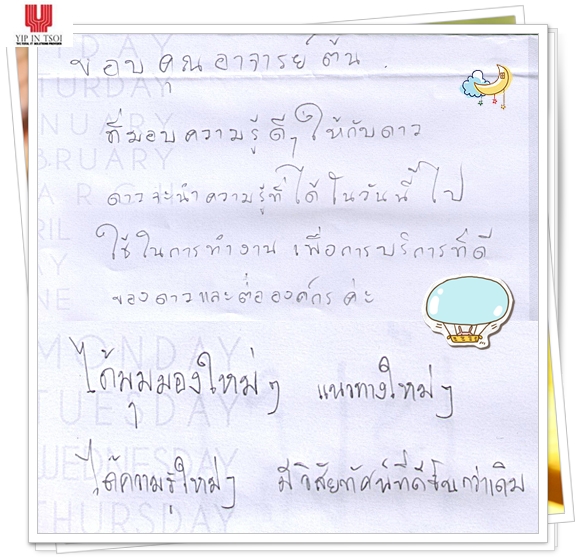 YIP IN TSOI
ขอบคุณอาจารย์ต้น.
ที่มอบความรู้ดีๆ ให้กับดาว
ดาวจะนำความรู้ที่ได้ในวันนี้ไป
ใช้ในการทำงาน เพื่อการบริการที่ดี
ของดาวและต่อองค์กรค่ะ
ได้มุมมองใหม่ๆ แนวทางใหม่ๆ
ได้ความรู้ใหม่ๆ มีวิสัยทัศน์ที่ดีขึ้นกว่าเดิม
MONDAY
TUESDAY
WEDNESDAY
THURSDAY